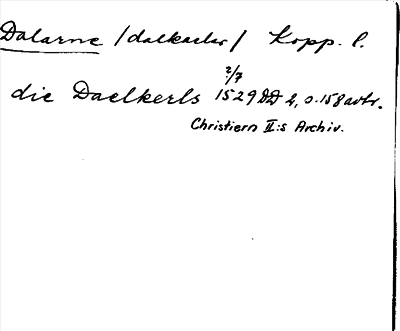 Dalarne /dalkarlar/ Kopp. l.
2/7
die Daelkerls 1529 DD 2, o.158 avtr.
Christiern II:s Archiv.